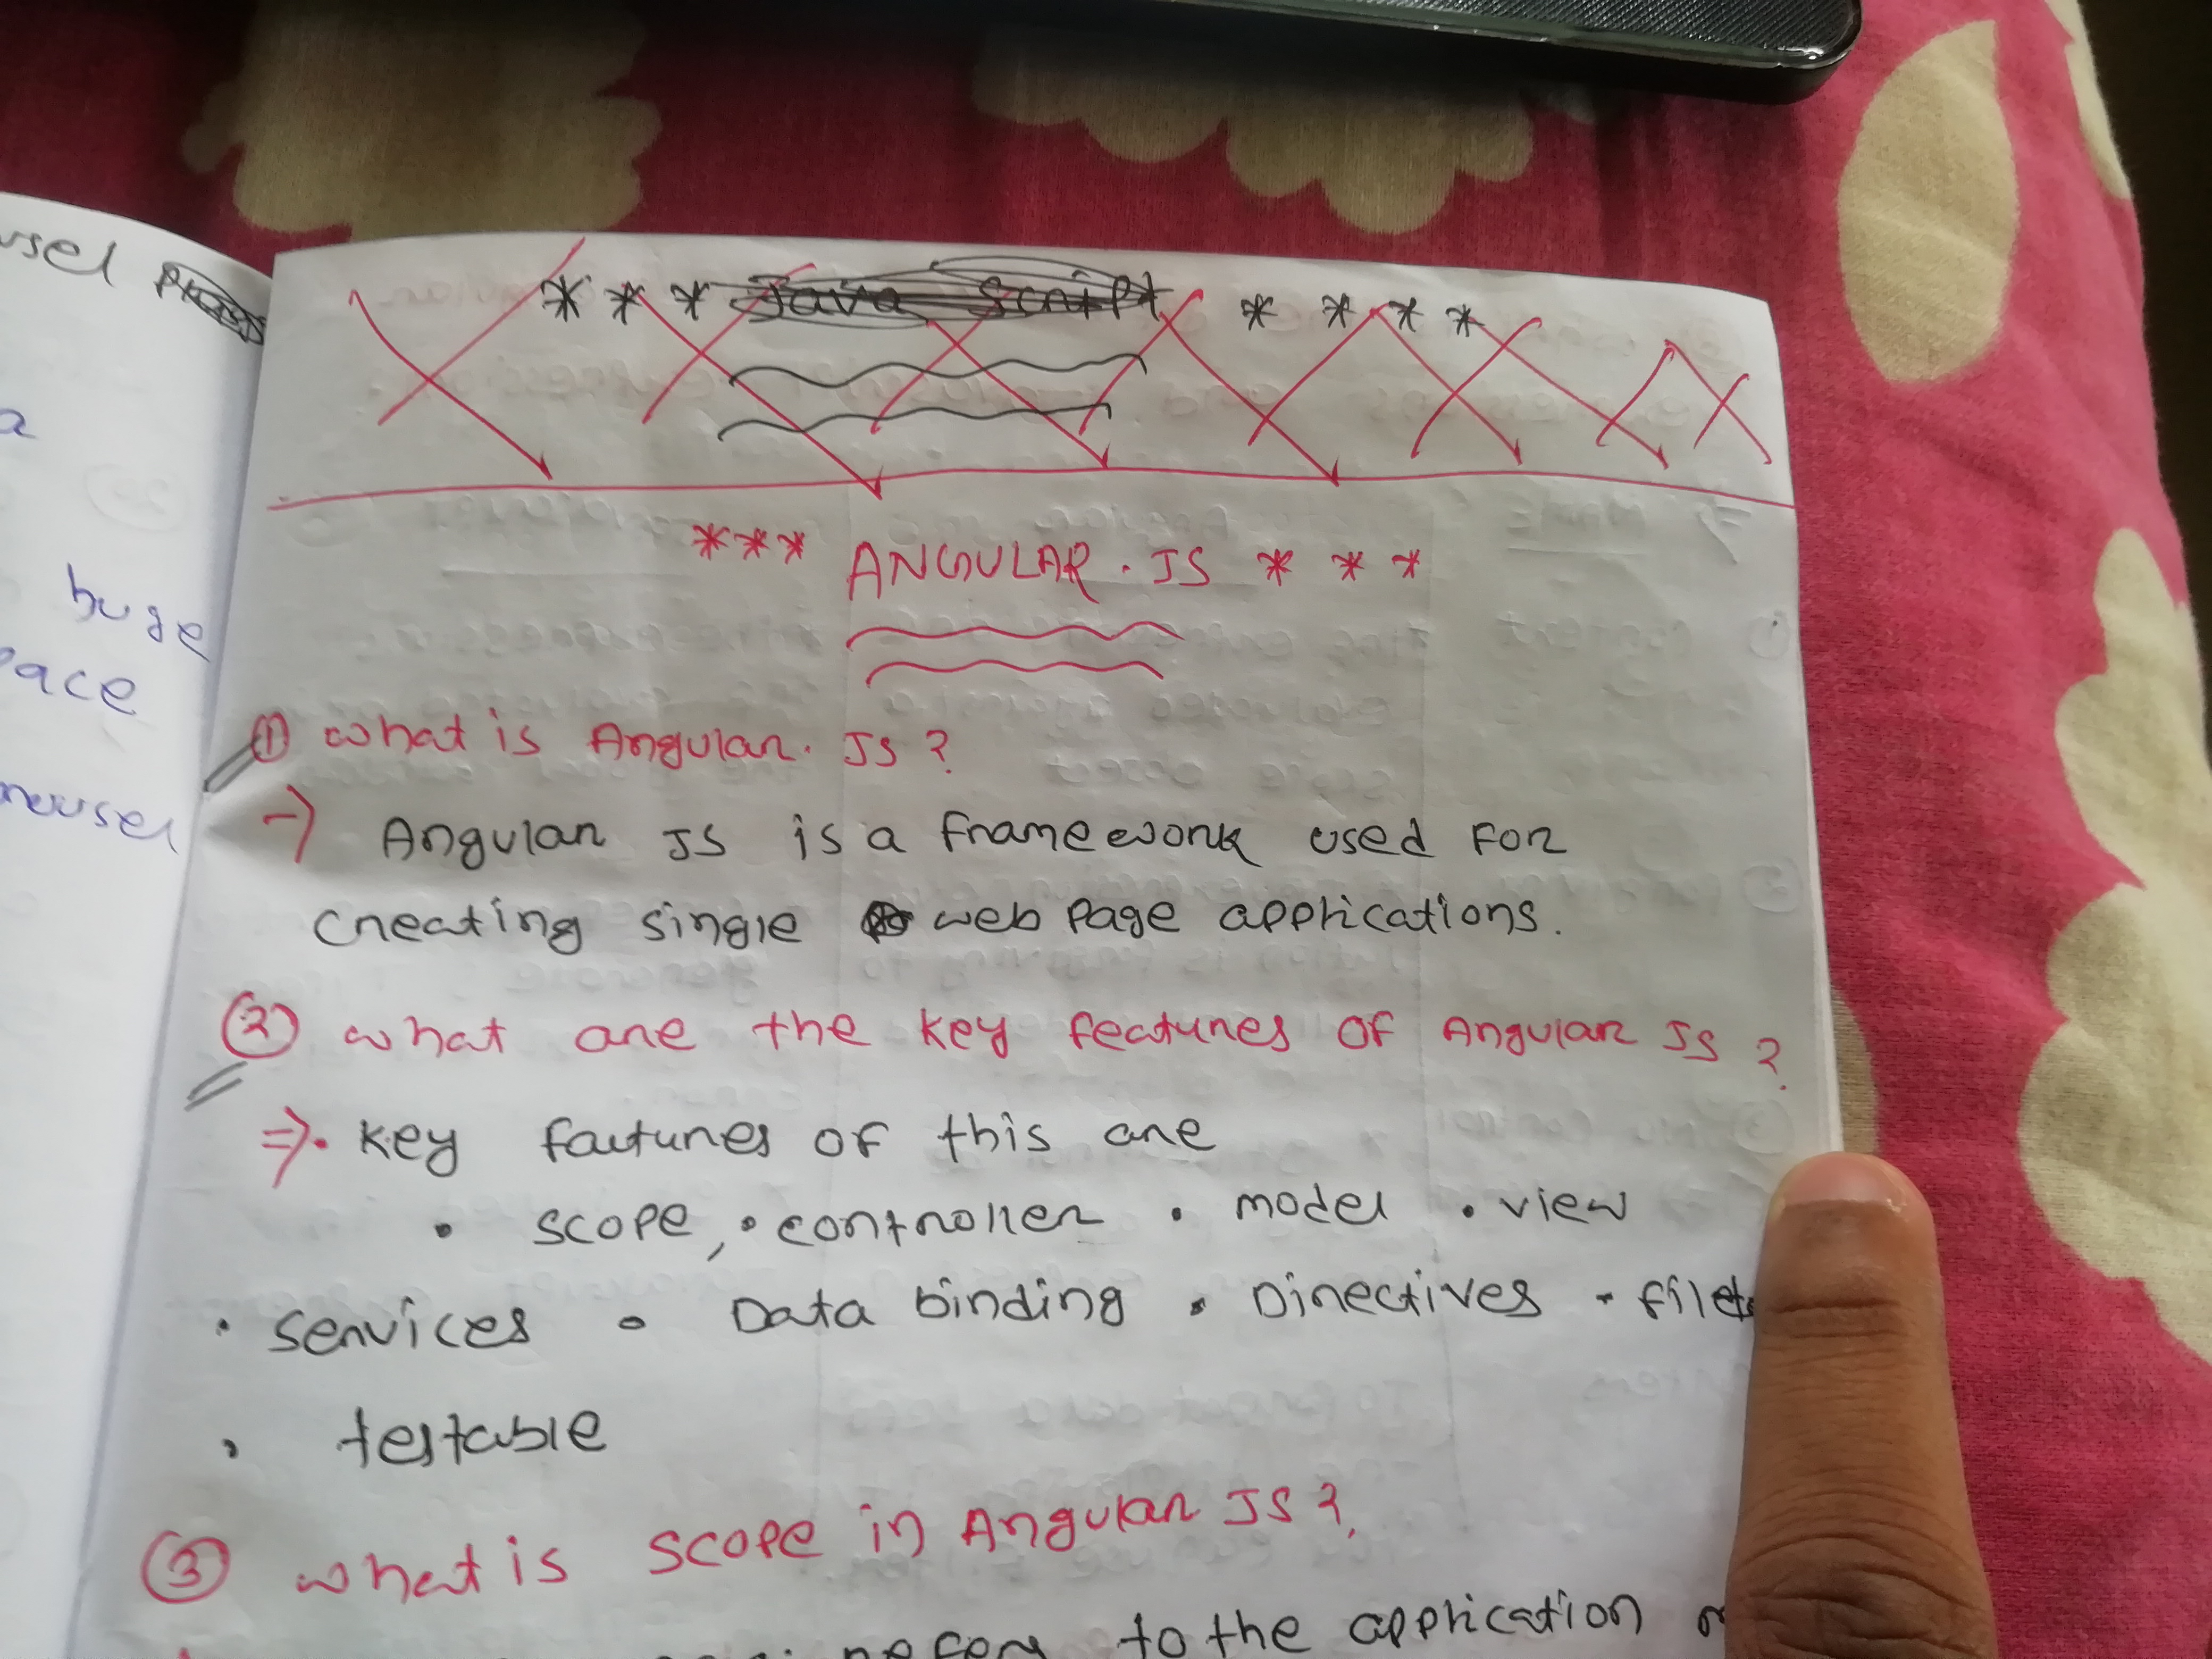 usel
a
huge
ace
* * * Java Script * * * *
*** ANGULAR. JS * * *
① What is Angular. JS ?
→ Angular JS is a framework used for
creating single web page applications.
② What are the key features of Angular JS ?
⇒. key faetures of this are
• scope, • controller • model • view
• services • Data binding • Directives • filet
• testable
③ What is scope in Angular JS ?
refers to the application